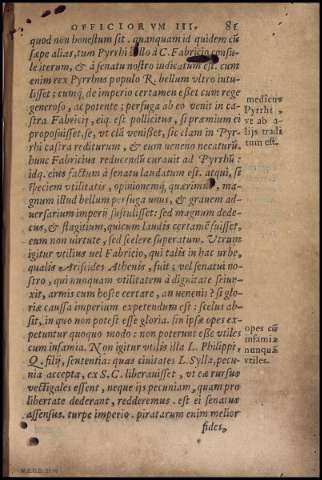 OFFICIORVM III. 85
quod non honestum sit. quanquam id quidem cū
sæpe aliàs, tum Pyrrhi bello à C. Fabricio consu-
le iterum, & à senatu nostro iudicatum est. cum
enim rex Pyrrhus populo R. bellum vltro intu-
lisset; cumq́; de imperio certamen esset cum rege
generoso, ac potente; perfuga ab eo venit in ca-
stra Fabricij, eiq́; est pollicitus, si præmium ei
proposuisset, se, vt clā venisset, sic clam in Pyr-
rhi castra rediturum, & eum ueneno necaturū.
hunc Fabricius reducendū curauit ad Pyrrhū:
idq́; eius factum à senatu laudatum est. atqui, si
speciem vtilitatis, opinionemq́; quærimus, ma-
gnum illud bellum perfuga unus, & grauem ad-
uersarium imperij sustulisset: sed magnum dede-
cus, & flagitium, quicum laudis certamē fuisset,
eum non uirtute, sed scelere superatum. Vtrum
igitur vtilius uel Fabricio, qui talis in hac urbe,
qualis Aristides Athenis, fuit; vel senatui no-
stro, qui nunquam vtilitatem à dignitate seiun-
xit, armis cum hoste certare, an uenenis? si glo-
riæ caussa imperium expetendum est: scelus ab-
sit, in quo non potest esse gloria. sin ipsæ opes ex-
petuntur quoquo modo: non poterunt esse vtiles
cum infamia. Non igitur vtilis illa L. Philippi,
Q. filij, sententia: quas ciuitates L. Sylla, pecu-
nia accepta, ex S. C. liberauisset, vt eæ rursus
vectigales essent, neque ijs pecuniam, quam pro
libertate dederant, redderemus. est ei senatus
assensus. turpe imperio. piratarum enim melior
fides,
medicus
Pyrrhi,
ve ab a-
lijs tradi
tum est.
opes cū
infamia
nunquā
vtiles.